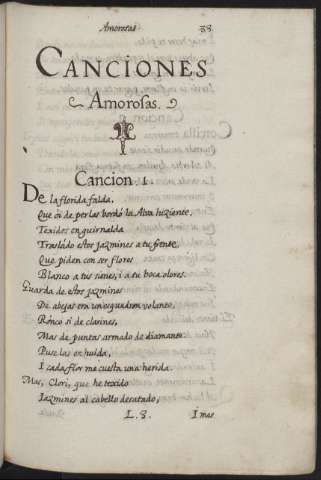 Amorosas. 83.
CANCIONES
Amorosas.
Cancion 1
De la florida falda,
Que oi de perlas bordò la Alva luziente,
Texidos en guirnalda
Traslado estos jazmines a tu frente,
Que piden con ser flores
Blanco a tus sienes, i a tu boca olores.
Guarda de estos jazmines
De abejas era un esquadron volante,
Rónco si de clarines,
Mas de puntas armado de diamante
Puselas en huida,
I cada flor me cuesta una herida.
Mas, Clori, que he texido
Jazmines al cabello desatado,
L. 3. I mas